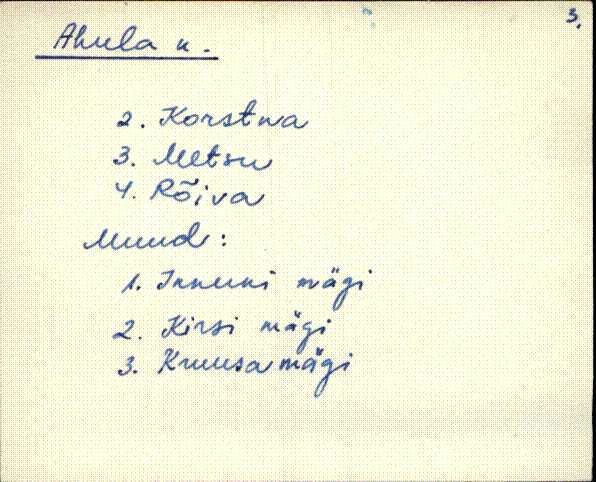 3.
Ahula k.
2. Korstna
3. Metsu
4. Rõiva
Muud:
1. Innuki mägi
2. Kirsi mägi
3. Kruusamägi